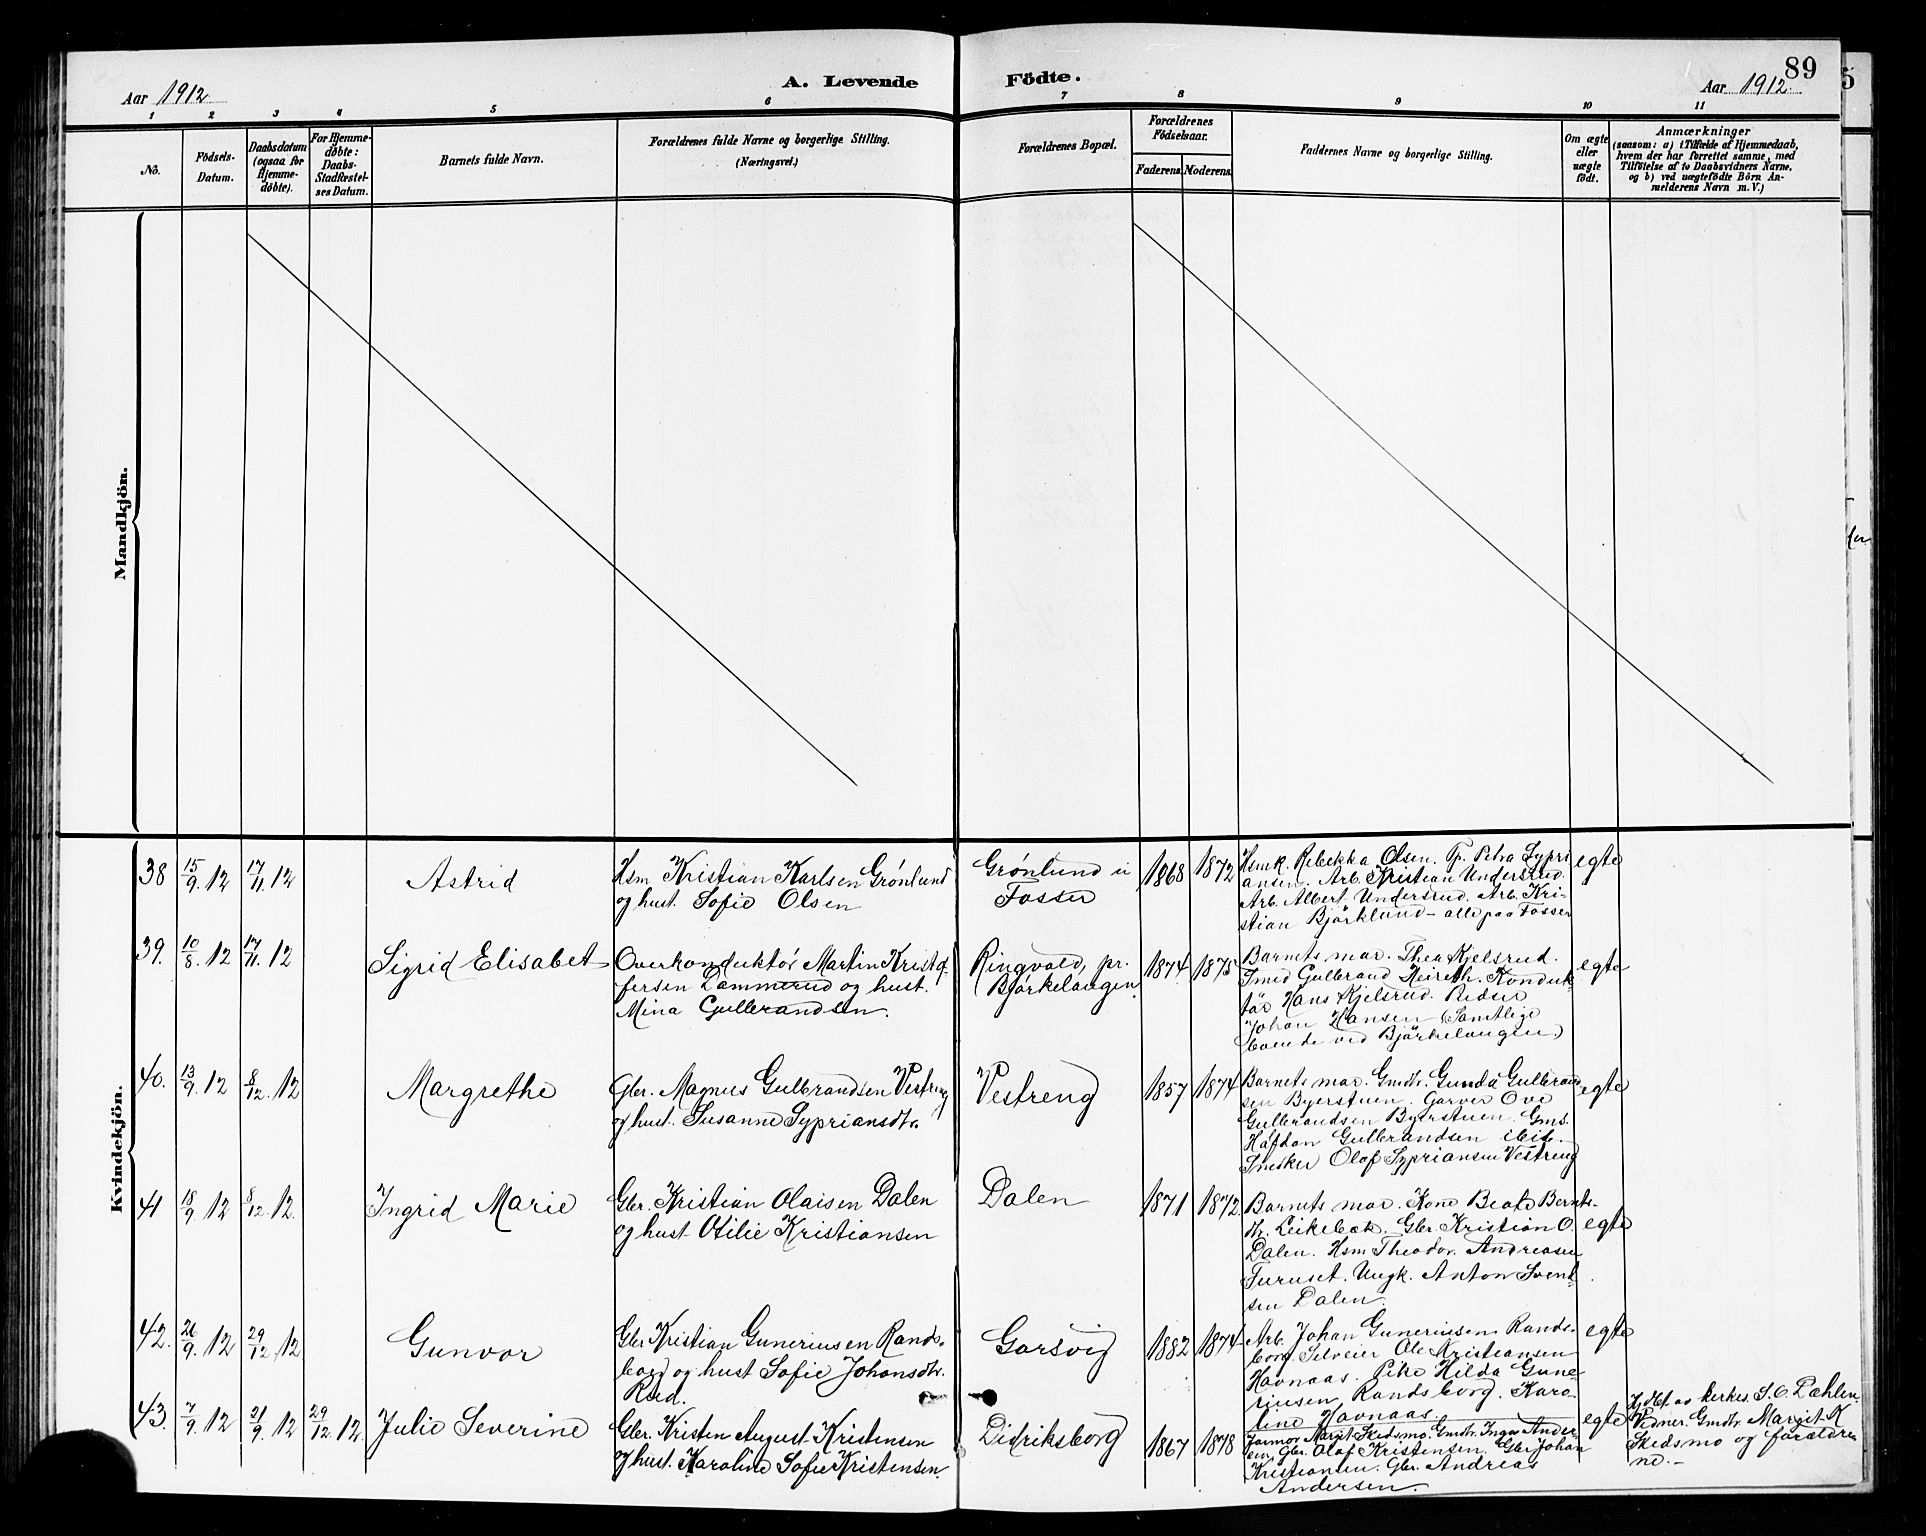 89
Aar 1912
A. Levende
Födte.
Aar 1912
1 2 3 4 5 6 7 8 9 10 11
No.
Födsels-
Datum.
Daabsdatum
(ogsaa for
Hjemme-
döbte).
For Hjemme-
döbte:
Daabs-
Stadfæstel-
ses Datum.
Barnets fulde Navn.
Forældrenes fulde Navne og borgerlige Stilling.
(Næringsvei.)
Forældrenes Bopæl.
Forældrenes
Födselsaar.
Faderens. Moderens.
Faddernes Navne og borgerlige Stilling.
Om ægte
eller
uægte
födt.
Anmærkninger
(saasom: a) i Tilfælde af Hjemmedaab,
hvem der har forrettet samme, med
Tilföielse af to Daabsvidners Navne,
og b) ved uægtefödte Börn An-
melderens Navn m. V.)
Mandkjön.
Kvindekjön.
38 15/9 12 17/11 12
Astrid
Hsm Kristian Karlsen Grönlund
og hust. Sofie Olsen
Grönlund u
Fosser
1868 1872
Hsmk. Rebekka Olsen. Tp. Petra Sypri
ansen. Arb. Kristian Undersrud.
Arb. Albert Undersrud. Arb. Kri-
stian Björklund - alle paa Fosser
egte
39. 10/8 12 17/11 12
Sigrid Elisabet
Overkonduktör Martin Kristof
fersen Lammerud og hust.
Mina Gullerandsen.
Ringvold, pr.
Björkelangen
1874 1875
Barnets mor. Thea Kjelsrud.
Smed Gulbrand Heireth. Konduk-
tör Hans Kjelsrud. Reder
Johan Hansen (Samtlige
boende ved Björkelangen.)
egte
40. 13/9 12 8/12 12
Margrethe
Gbr. Magnus Gulbrandsen Vestreng
og hust. Susanne Sypriansdtr.
Vestreng
1857 1874
Barnets mor. Gmdtr. Gunda Gulbrand
sen Byerstuen. Garver Ove
Gulbrandsen Byerstuen. Gms.
Hafdan Gulbrandsen ibid.
Snekker Olaf Sypriansen Vestreng
egte
41 18/9 12 8/12 12
Ingrid Marie
Gbr. Kristian Olaisen Dalen
og hust Otilie Kristiansen
Dalen
1871 1872
Barnets mor. Kone Beate Bernts-
dtr. Leikebæk. Gbr Kristian O.
Dalen. Hsm Theodor Andreasen
Furuset. Ungk. Anton Svend
sen Dalen.
egte
42. 26/9 12 29/12 12
Gunvor
Gbr Kristian Guneriusen Rands-
borg og hust Sofie Johansdtr.
Rud.
Garsvig
1882 1874
Arb. Johan Guneriusen Rands-
borg. Selveier Ole Kristiansen
Havnaas. Pike Hilda Gune-
riusen Randsborg. Karo-
line Havnaas
egte
43. 7/9 12 21/9 12 29/12 12
Julie Severine
Gbr. Kristen August Kristensen
og hust. Karoline Sofie Kristensen
Didriksborg
1867 1878
Jormor Margit Skedsmo. Gmdtr. Inga Ander
sen, Gbr. Olaf Kristensen. Gbr Johan
Kristiansen. Gbr. Andreas
Andersen.
egte
Hjdbt. av kirkes. S. C. Dæhlen.
Vidner. Gmdtr. Margit K
Skedsmo og forældre
ne.-